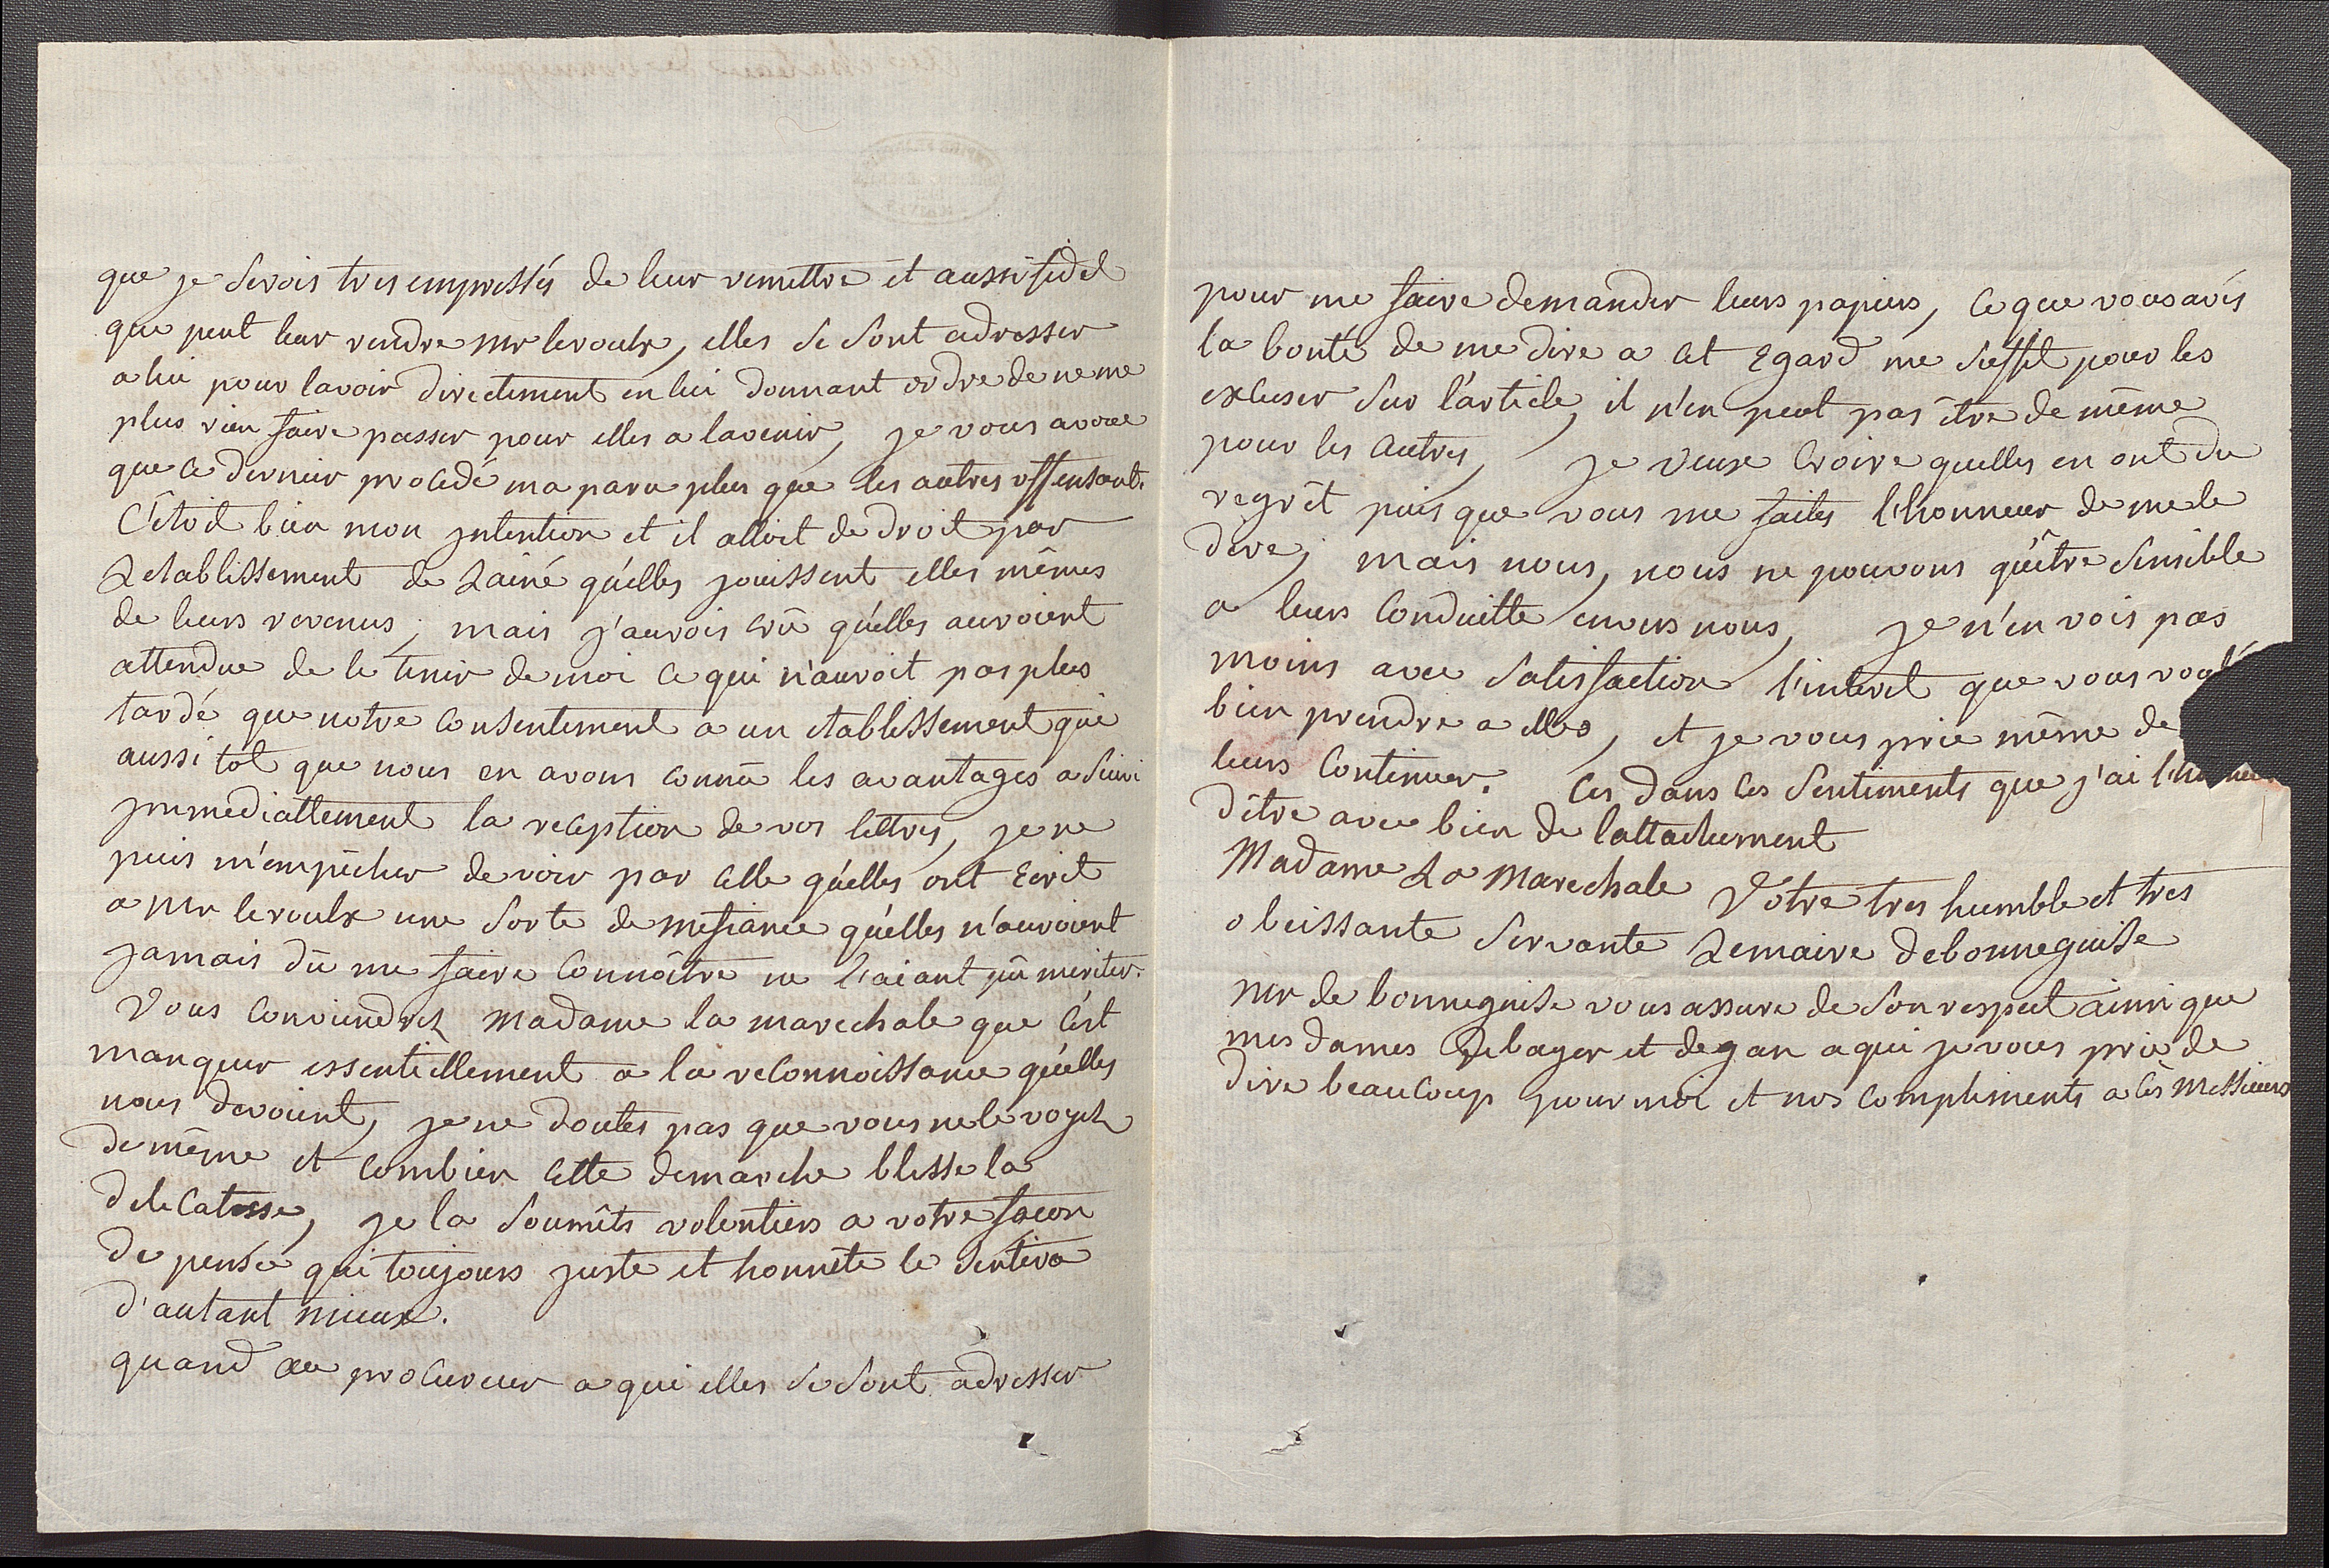 que je serois tres empressés de leur remettre et aussi fidel
que peut leur rendre mr leroulx, elles se sont adresser
a lui pour lavoir directement en lui donnant ordre de ne me
plus rien faire passer pour elles a lavenir, je vous avoue
que ce dernier procedé ma paru plus que les autres offensant.
C'étoit bien mon jntention et il alloit de droit par
Letablissement de Lainé qu'elles jouissent elles mêmes
de leurs revenus; mais j'aurois crû qu'elles auroient
attendue de le tenir de moi ce qui n'auroit pas plus
tardé que notre consentement a un etablissement qui
aussi tot que nous en avons connû les avantages a suivi
jmmediattement la reception de vos lettres, je ne
puis m'empêcher de voir par celle qu'elles ont Ecrit
a mr leroulx une sorte de mefiance qu'elles n'auroient
jamais dû me faire connoître ne l'aiant pû meriter.
Vous conviendrez Madame la marechale que c'est
manquer essentiellement a la reconnoissance qu'elles
nous devoient, je ne doutes pas que vous ne le voyez
de même et combien cette demarche blesse la
delicatesse, je la soumêts volontiers a votre façon
de pensée qui toujours juste et honnête le sentira
d'autant mieux.
quand au procureur a qui elles se sont adresser
pour me faire demander leurs papiers, ce que vous avés
la bonté de me dire a cet Egard me suffit pour les
excuser sur l'article, il n'en peut pas être de même
pour les autres, je veux croire quelles en ont du
regrêt puis que vous me faites l'honneur de me le
dire; mais nous, nous ne pouvons qu'être sensible
a leurs conduitte envers nous, je n'en vois pas
moins avec satisfaction l'interet que vous voulé
bien prendre a elles, et je vous prie même de
leurs continuer. Ces dans ces sentiments que j'ai l'honneur
d'être avec bien de lattachement
Madame La Marechale Votre tres humble et tres
obeissante servante Lemaire debonneguise
mr de bonneguise vous assure de son respect ainsi que
mes dames debayer et degan a qui je vous prie de
dire beaucoup pour moi et nos compliments a ces Messieurs